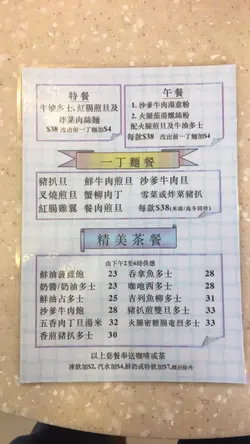 特餐
牛油多士,紅腸煎旦及
炸菜肉絲麵
$38 改出前一丁麵加$4
午餐
1. 沙爹牛肉湯意粉
2. 火腿茄湯螺絲粉
配火腿煎旦及牛油多士
每款$38 改出前一丁麵加$4
一丁麵餐
豬扒旦 鮮牛肉煎旦 沙爹牛肉旦
叉燒煎旦 蟹柳肉丁 雪菜或炸菜豬扒
紅腸雞翼 餐肉煎旦 每款$38(米線/烏冬同價)
精美茶餐
由下午2至6時供應
鮮油菠蘿飽 23
奶醬/奶油多士 23
鮮油占多士 25
沙爹牛肉飽 28
五香肉丁旦湯米 32
香煎豬扒多士 30
吞拿魚多士 28
咖吔西多士 28
吉列魚柳多士 31
豬扒煎雙旦多士 33
火腿蜜糖腸奄烈多士 33
以上套餐奉送咖啡或茶
凍飲加$2, 汽水加$4,鮮奶或特飲加$7,樓的除外